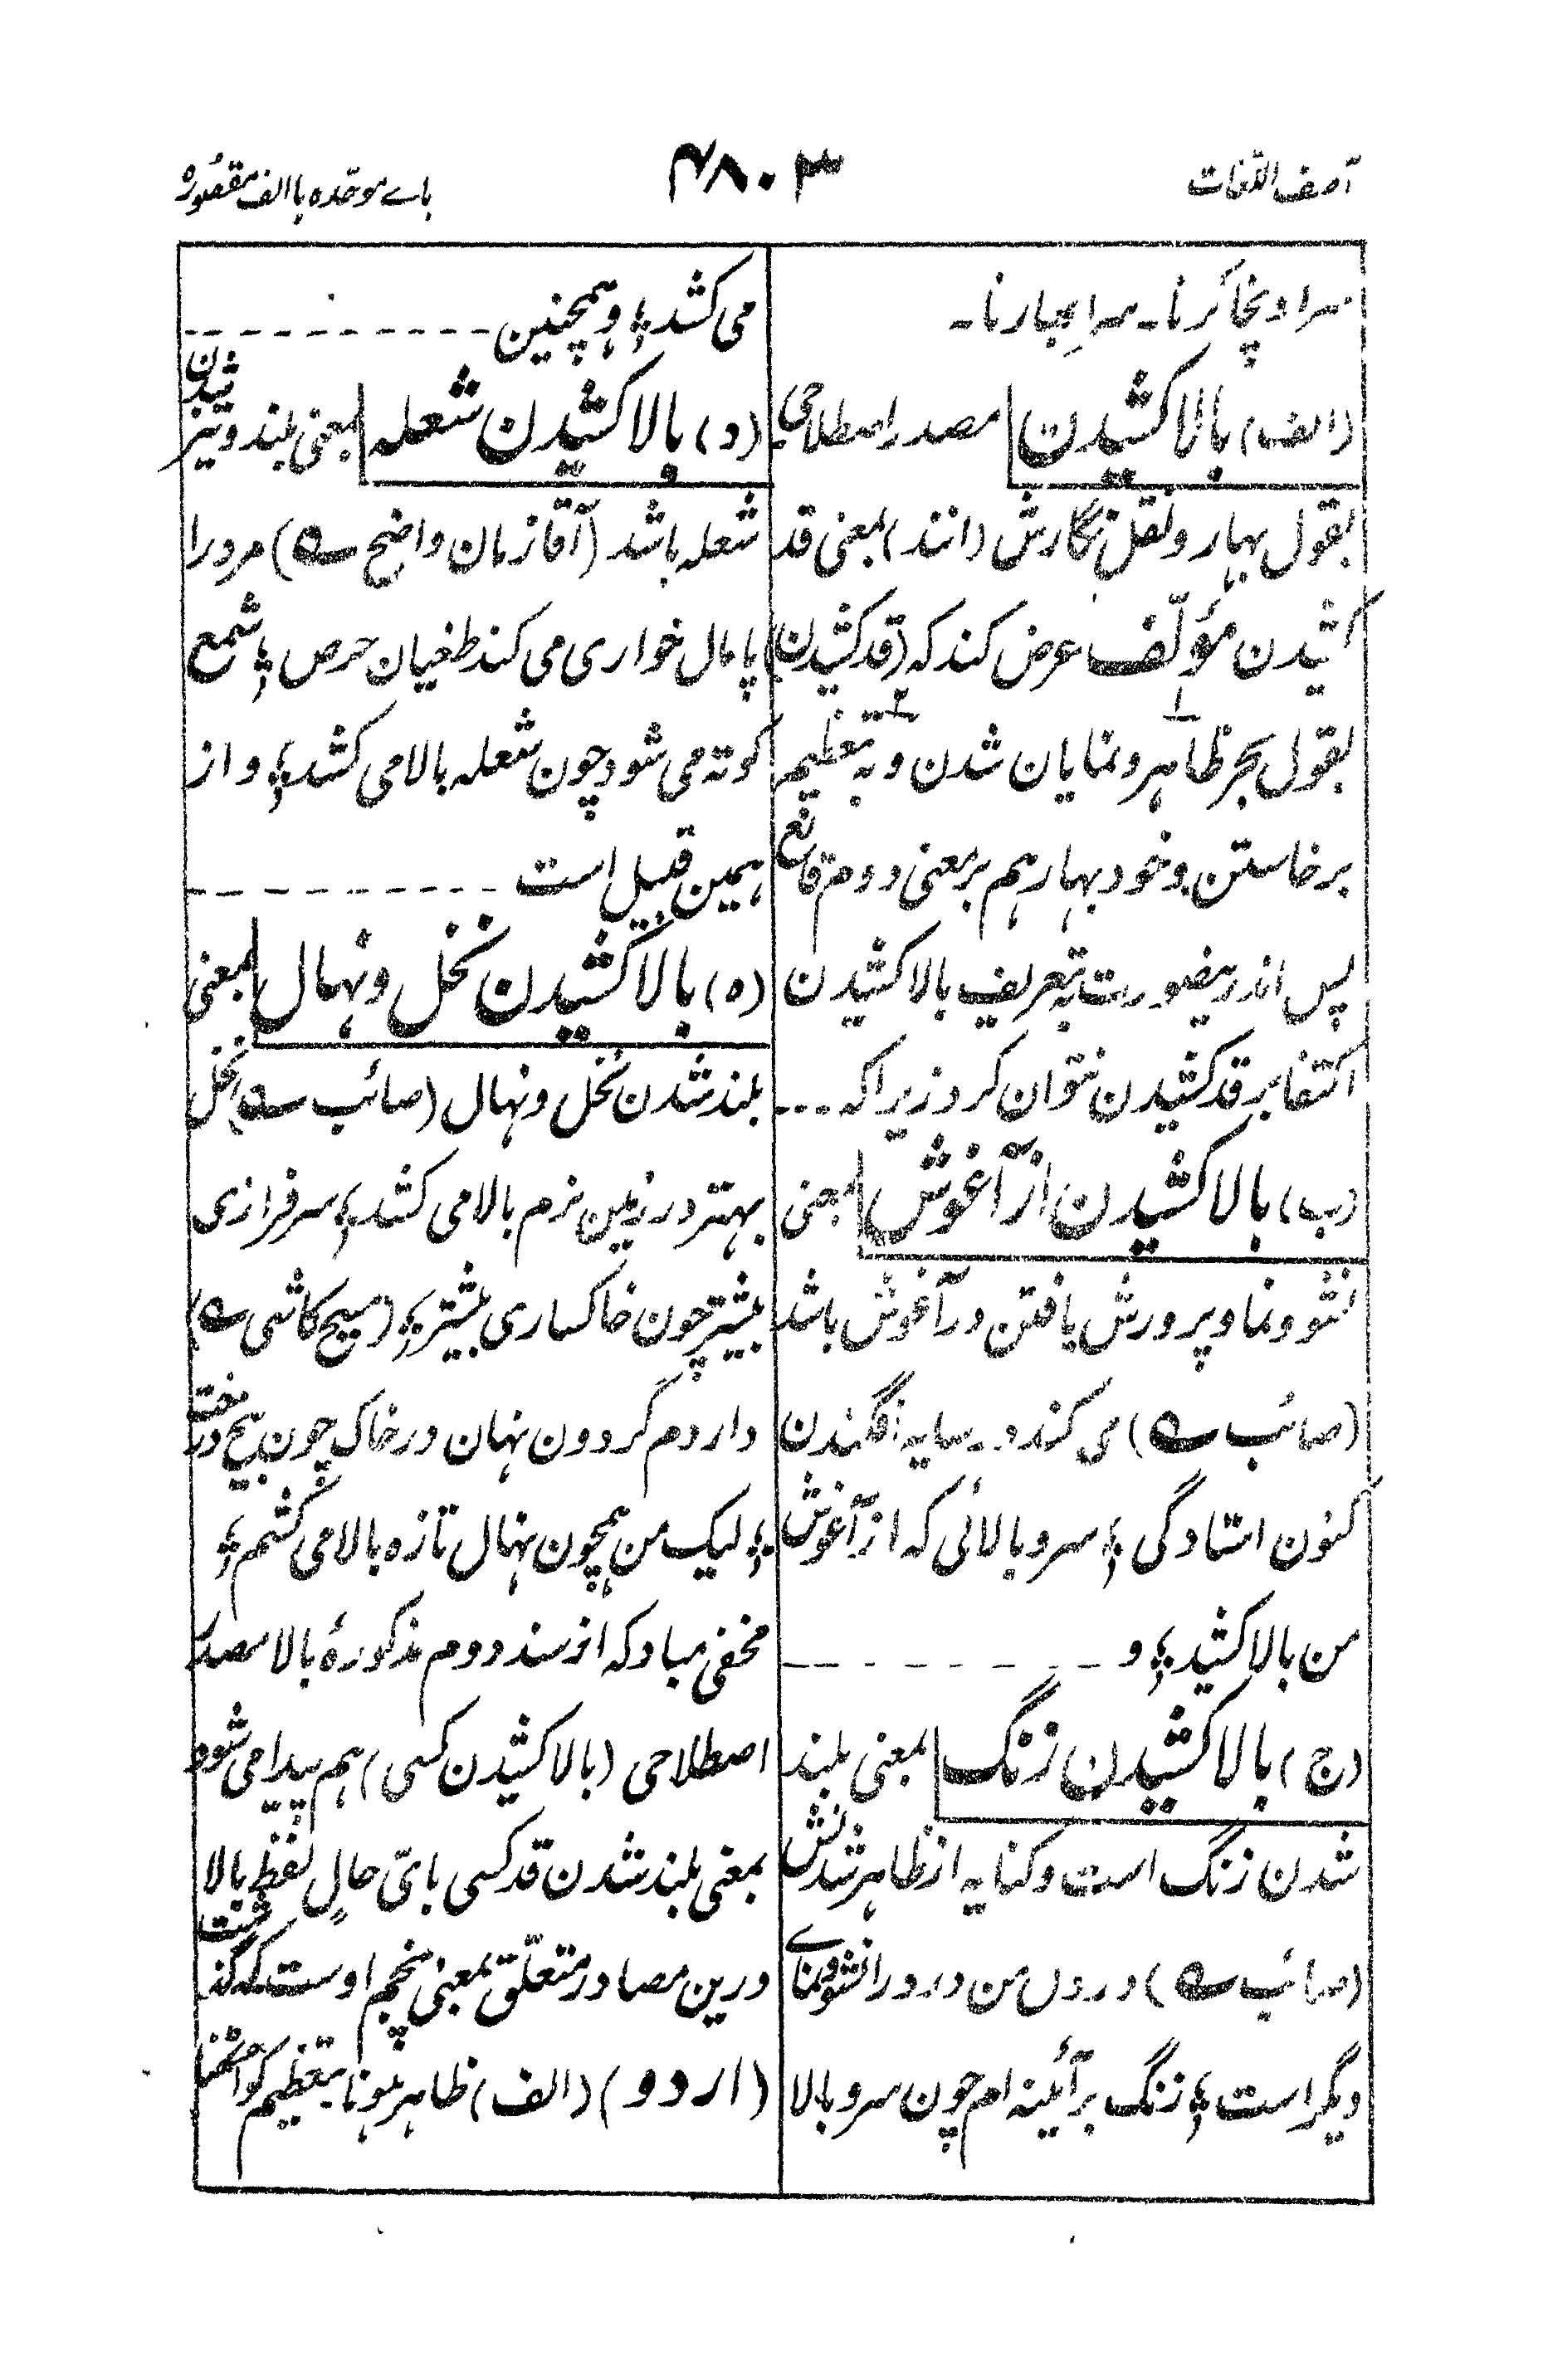 آصف اللغات
۴۸۰۳
بائے موحّدہ با الف مقصُورہ
سر اونچا کرنا۔ سر اُبھارنا۔
(الف) بالا کشیدن مصدر اصطلاحی
بقول بہار و نقل نگارش (انند) بمعنی قد
کشیدن مؤلّف عرض کند کہ (قد کشیدن)
بقول بحر ظاہر و نمایان شدن و بہ تعظیم
برخاستن و خود بہار ہم بر معنی دوم قانع
پس اندرینصورت بہ تعریف بالا کشیدن
اکتفا بر قد کشیدن نتوان کرد زیرا کہ ...
(ب) بالا کشیدن از آغوش بمعنی
نشو و نما و پرورش یافتن در آغوش باشد
(صائب ؎) می کند در سایہ افگندن
کنون استادگی ؛ سرو بالائی کہ از آغوش
من بالا کشید ؛ و
(ج) بالا کشیدن زنگ بمعنی بلند
شدن زنگ است و کنایہ از ظاہر شدنش
(صائب ؎) در دل من درد را نشو و نمای
دیگر است ؛ زنگ بر آئینہ ام چون سرو بالا
می کشد ؛ و ہمچنین
(د) بالا کشیدن شعلہ بمعنی بلند و تیز شدن
شعلہ باشد (آقا زمان واضح ؎) مرد را
پامال خواری می کند طغیان حرص ؛ شمع
کوتہ می شود چون شعلہ بالا می کشد ؛ و از
ہمین قبیل است
(ہ) بالا کشیدن نخل و نہال بمعنی
بلند شدن نخل و نہال (صائب ؎) نخل
بہتر در زمین نرم بالا می کشد ؛ سرفرازی
بیشتر چون خاکساری بیشتر ؛ (مسیح کاشی ؎)
داردم گردون نہان در خاک چون بیخ درخت
؛ لیک من ہمچون نہال تازہ بالا می کشم ؛
مخفی مباد کہ از سند دوم مذکورۂ بالا مصدر
اصطلاحی (بالا کشیدن کسی) ہم پیدا می شود
بمعنی بلند شدن قد کسی بایّ حالٍ لفظ بالا
درین مصادر متعلّق بمعنی پنجم اوست کہ گذشت
(اردو) (الف) ظاہر ہونا۔ تعظیم کو اٹھنا